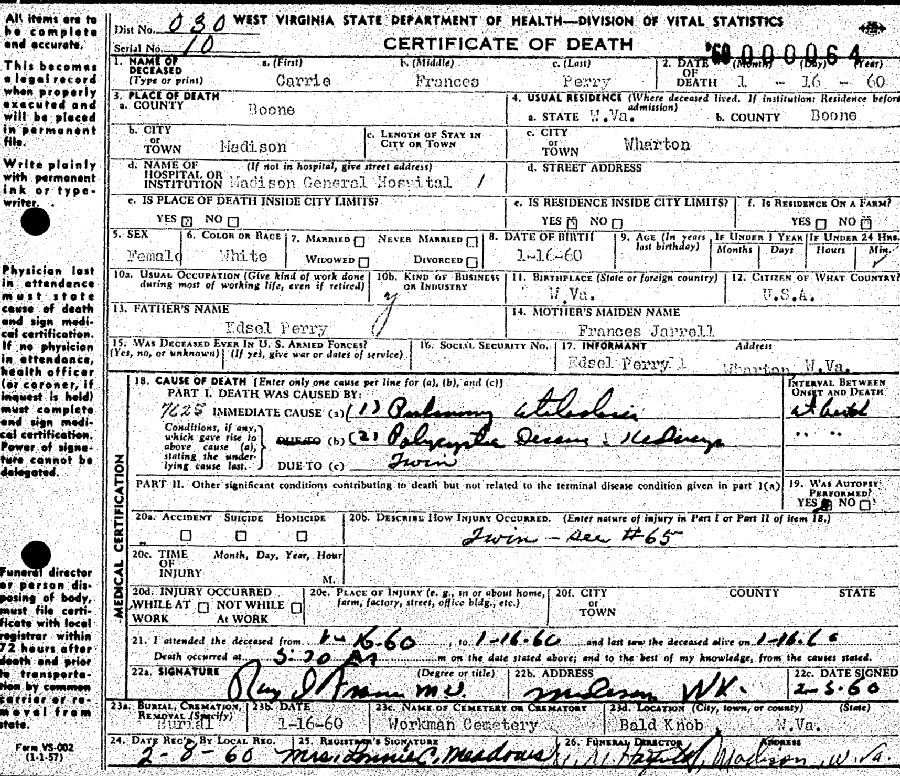 All items are to be complete and accurate.
This becomes a legal record when properly executed and will be placed in permanent file.
Write plainly with permanent ink or typewriter.
Physician last in attendance must state cause of death and sign medical certification. If no physician in attendance, health officer (or coroner, if inquest is held) must complete and sign medical certification. Power of signature cannot be delegated.
Funeral director or person disposing of body, must file certificate with local registrar within 72 hours after death and prior to transportation by common carrier or removal from state.
Form VS-002
(1-1-57)
Dist No. 030 WEST VIRGINIA STATE DEPARTMENT OF HEALTH—DIVISION OF VITAL STATISTICS
Serial No. 10 CERTIFICATE OF DEATH '60 000064
1. NAME OF DECEASED (Type or print) a. (First) b. (Middle) c. (Last) 2. DATE OF DEATH (Month) (Day) (Year)
Carrie Frances Perry 1 - 16 - 60
3. PLACE OF DEATH 4. USUAL RESIDENCE (Where deceased lived. If institution: Residence before admission)
a. COUNTY Boone a. STATE W.Va. b. COUNTY Boone
b. CITY or TOWN Madison c. LENGTH OF STAY IN CITY OR TOWN c. CITY or TOWN Wharton
d. NAME OF HOSPITAL OR INSTITUTION (If not in hospital, give street address) Madison General Hospital d. STREET ADDRESS
e. IS PLACE OF DEATH INSIDE CITY LIMITS? e. IS RESIDENCE INSIDE CITY LIMITS? f. IS RESIDENCE ON A FARM?
YES X NO YES X NO YES NO X
5. SEX 6. COLOR OR RACE 7. MARRIED NEVER MARRIED 8. DATE OF BIRTH 9. AGE (In years last birthday) IF UNDER 1 YEAR IF UNDER 24 HRS.
Female White WIDOWED DIVORCED 1-16-60 Months Days Hours Min.
10a. USUAL OCCUPATION (Give kind of work done during most of working life, even if retired) 10b. KIND OF BUSINESS OR INDUSTRY 11. BIRTHPLACE (State or foreign country) 12. CITIZEN OF WHAT COUNTRY?
W.Va. U.S.A.
13. FATHER'S NAME 14. MOTHER'S MAIDEN NAME
Edsel Perry Frances Jarrell
15. WAS DECEASED EVER IN U. S. ARMED FORCES? 16. SOCIAL SECURITY NO. 17. INFORMANT Address
(Yes, no, or unknown) (If yes, give war or dates of service) Edsel Perry Wharton, W.Va.
MEDICAL CERTIFICATION
18. CAUSE OF DEATH [Enter only one cause per line for (a), (b), and (c)] INTERVAL BETWEEN ONSET AND DEATH
PART I. DEATH WAS CAUSED BY:
7625 IMMEDIATE CAUSE (a) (1) Pulmonary atelectasis at birth
Conditions, if any, which gave rise to above cause (a), stating the underlying cause last. DUE TO (b) (2) Polycystic Disease : Kidneys " "
DUE TO (c) Twin
PART II. Other significant conditions contributing to death but not related to the terminal disease condition given in part I(a) 19. WAS AUTOPSY PERFORMED? YES NO
20a. ACCIDENT SUICIDE HOMICIDE 20b. DESCRIBE HOW INJURY OCCURRED. (Enter nature of injury in Part I or Part II of item 18.)
Twin — see #65
20c. TIME OF INJURY Month, Day, Year, Hour M.
20d. INJURY OCCURRED WHILE AT WORK NOT WHILE AT WORK 20e. PLACE OF INJURY (e. g., in or about home, farm, factory, street, office bldg., etc.) 20f. CITY or TOWN COUNTY STATE
21. I attended the deceased from 1-16-60, to 1-16-60 and last saw the deceased alive on 1-16-60
Death occurred at 5:30 m on the date stated above; and to the best of my knowledge, from the causes stated.
22a. SIGNATURE (Degree or title) 22b. ADDRESS 22c. DATE SIGNED
M.D. Madison 2-5-60
23a. BURIAL, CREMATION, REMOVAL (Specify) 23b. DATE 23c. NAME OF CEMETERY OR CREMATORY 23d. LOCATION (City, town, or county) (State)
Burial 1-16-60 Workman Cemetery Bald Knob W.Va.
24. DATE REC'D BY LOCAL REG. 25. REGISTRAR'S SIGNATURE 26. FUNERAL DIRECTOR ADDRESS
2-8-60 Mrs. Lonnie C. Meadows Madison, W. Va.